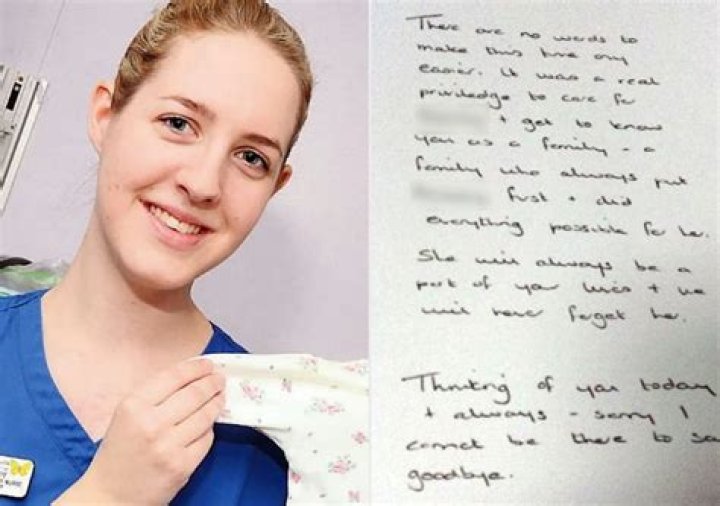 There are no words to
make this time any
easier. It was a real
priviledge to care for
+ get to know
you as a family - a
family who always put
first + did
everything possible for her.
She will always be a
part of your lives + we
will never forget her.
Thinking of you today
+ always - sorry I
cannot be there to say
goodbye.
NURSE